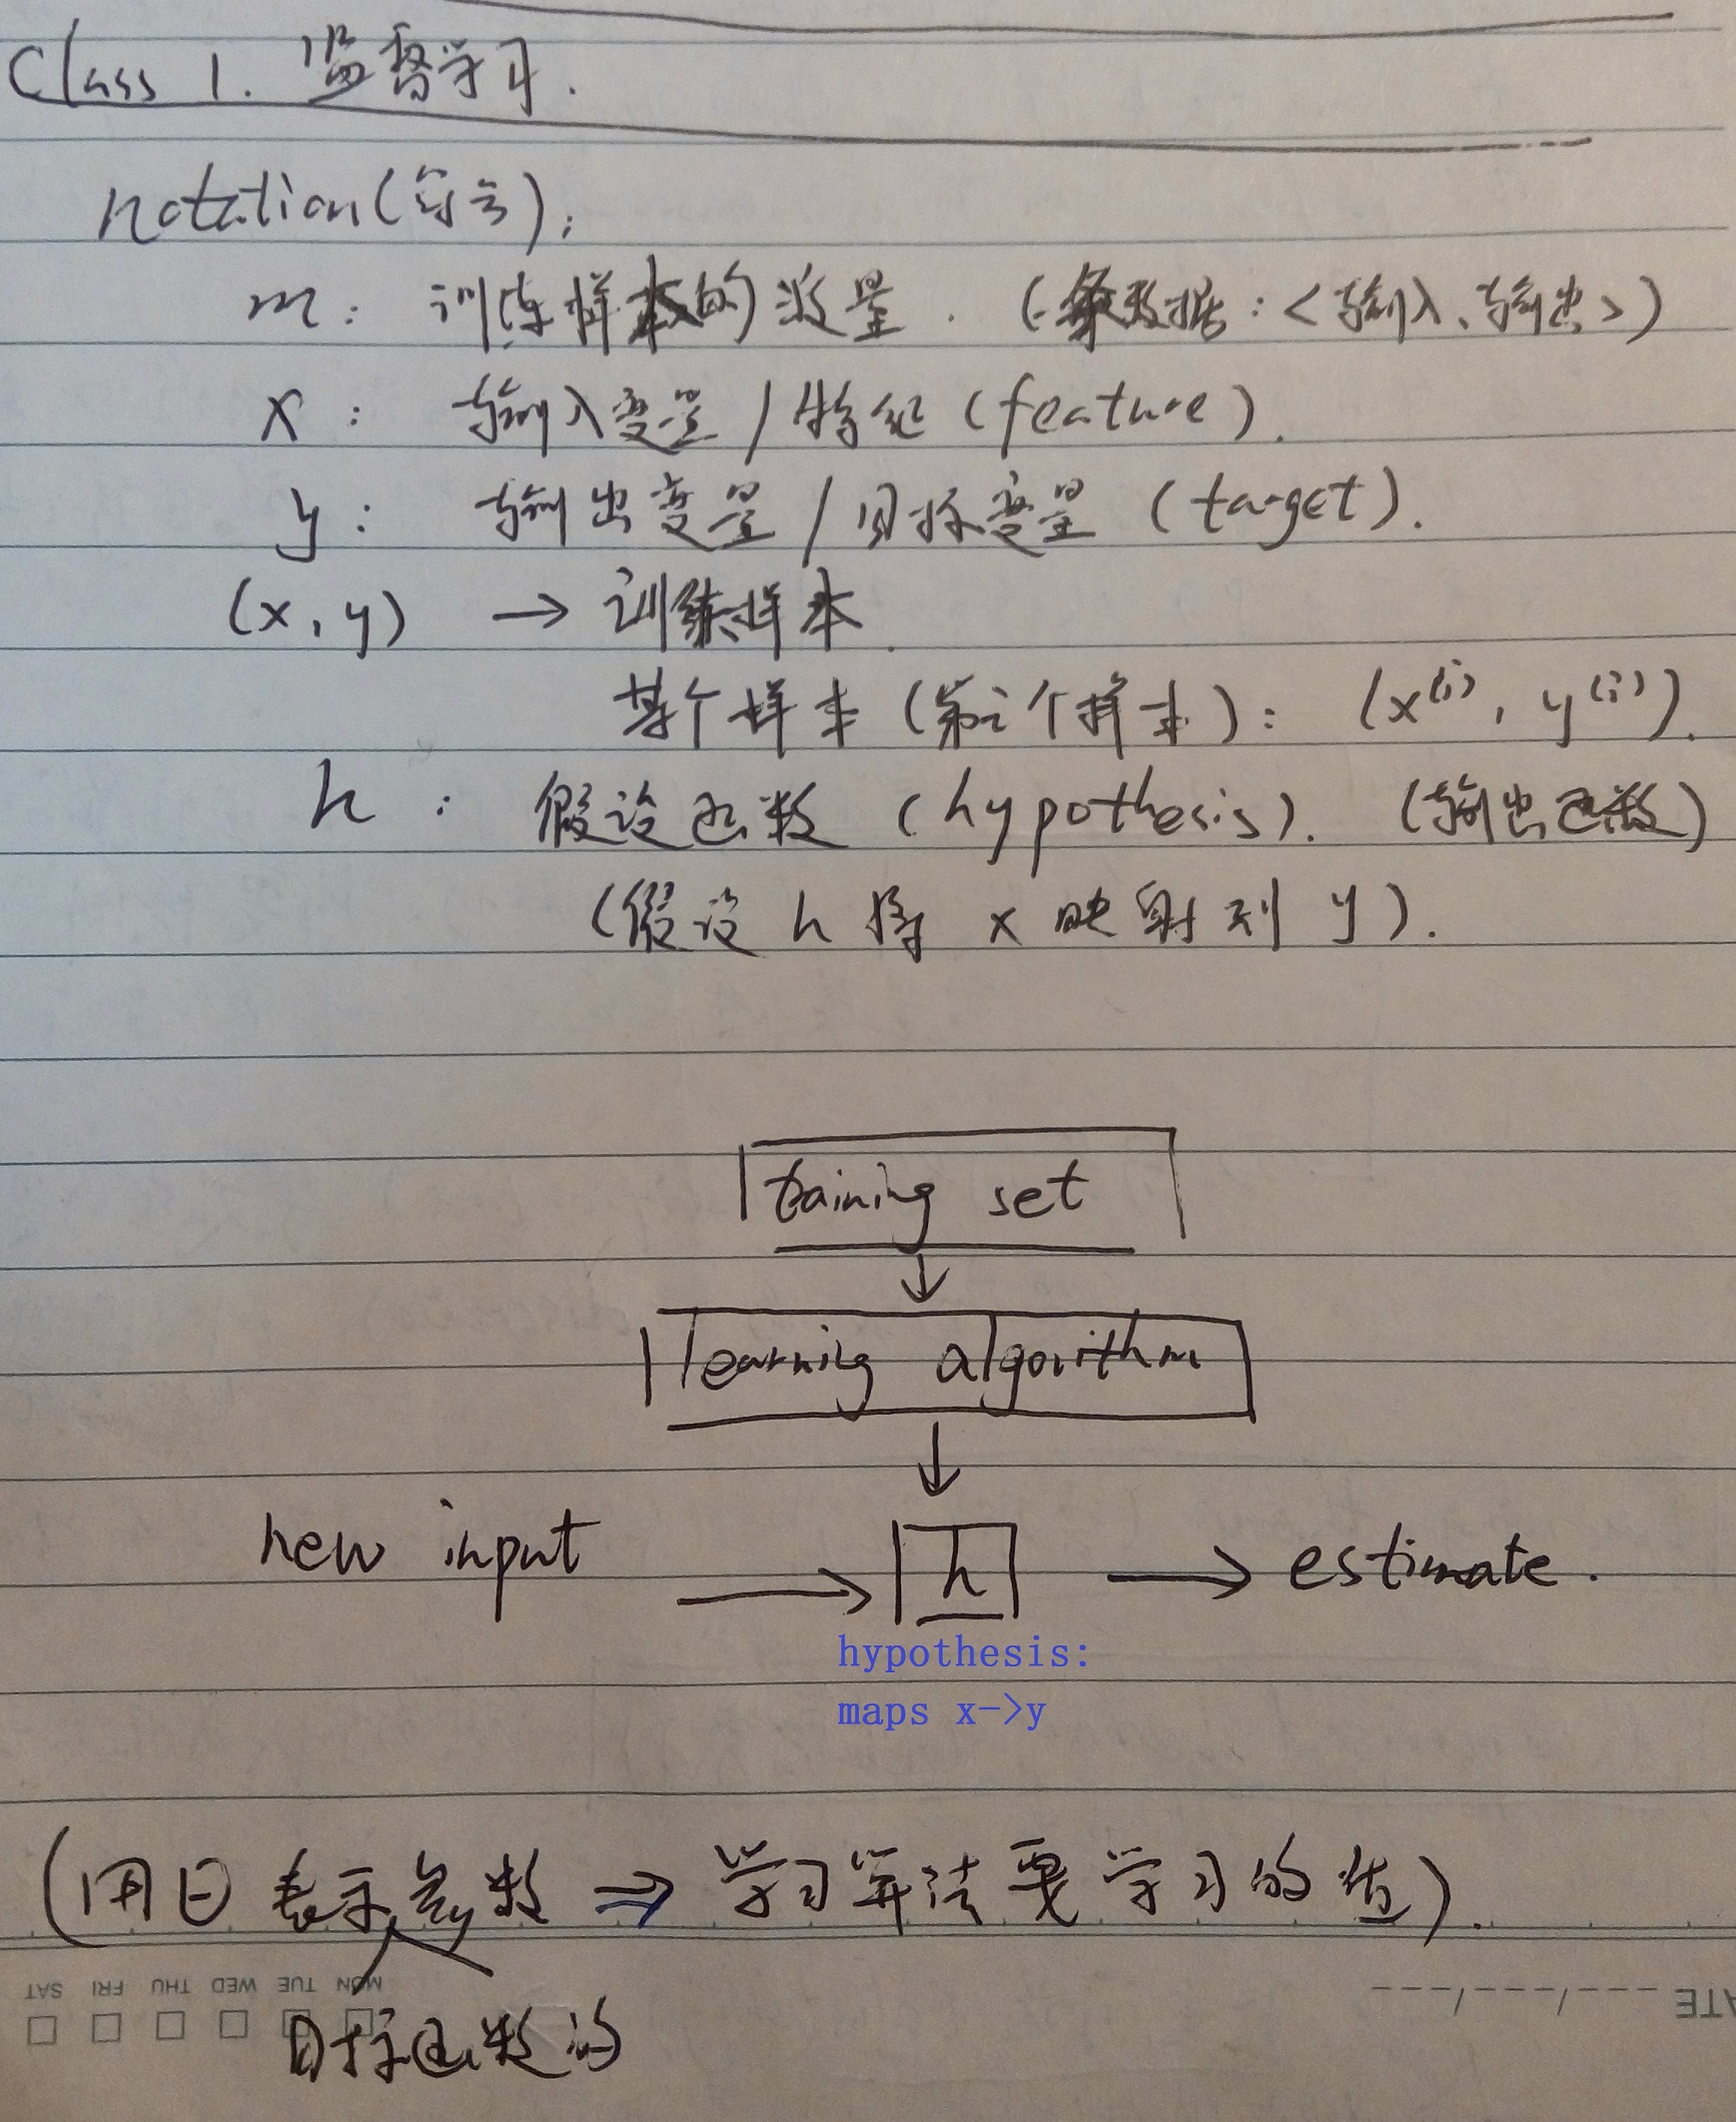 Class 1. 监督学习.
notation(符号):
m: 训练样本的数量. (一条数据:<输入、输出>)
x: 输入变量/特征(feature).
y: 输出变量/目标变量(target).
(x,y) → 训练样本.
某个样本(第i个样本): (x⁽ⁱ⁾, y⁽ⁱ⁾).
h: 假设函数(hypothesis). (输出函数)
(假设 h 将 x 映射到 y).
training set
↓
learning algorithm
↓
new input → h → estimate.
hypothesis:
maps x->y
(用θ表示参数 ⇒ 学习算法要学习的值).
目标函数的
SAT FRI THU WED TUE MON
ATE ---/---/---